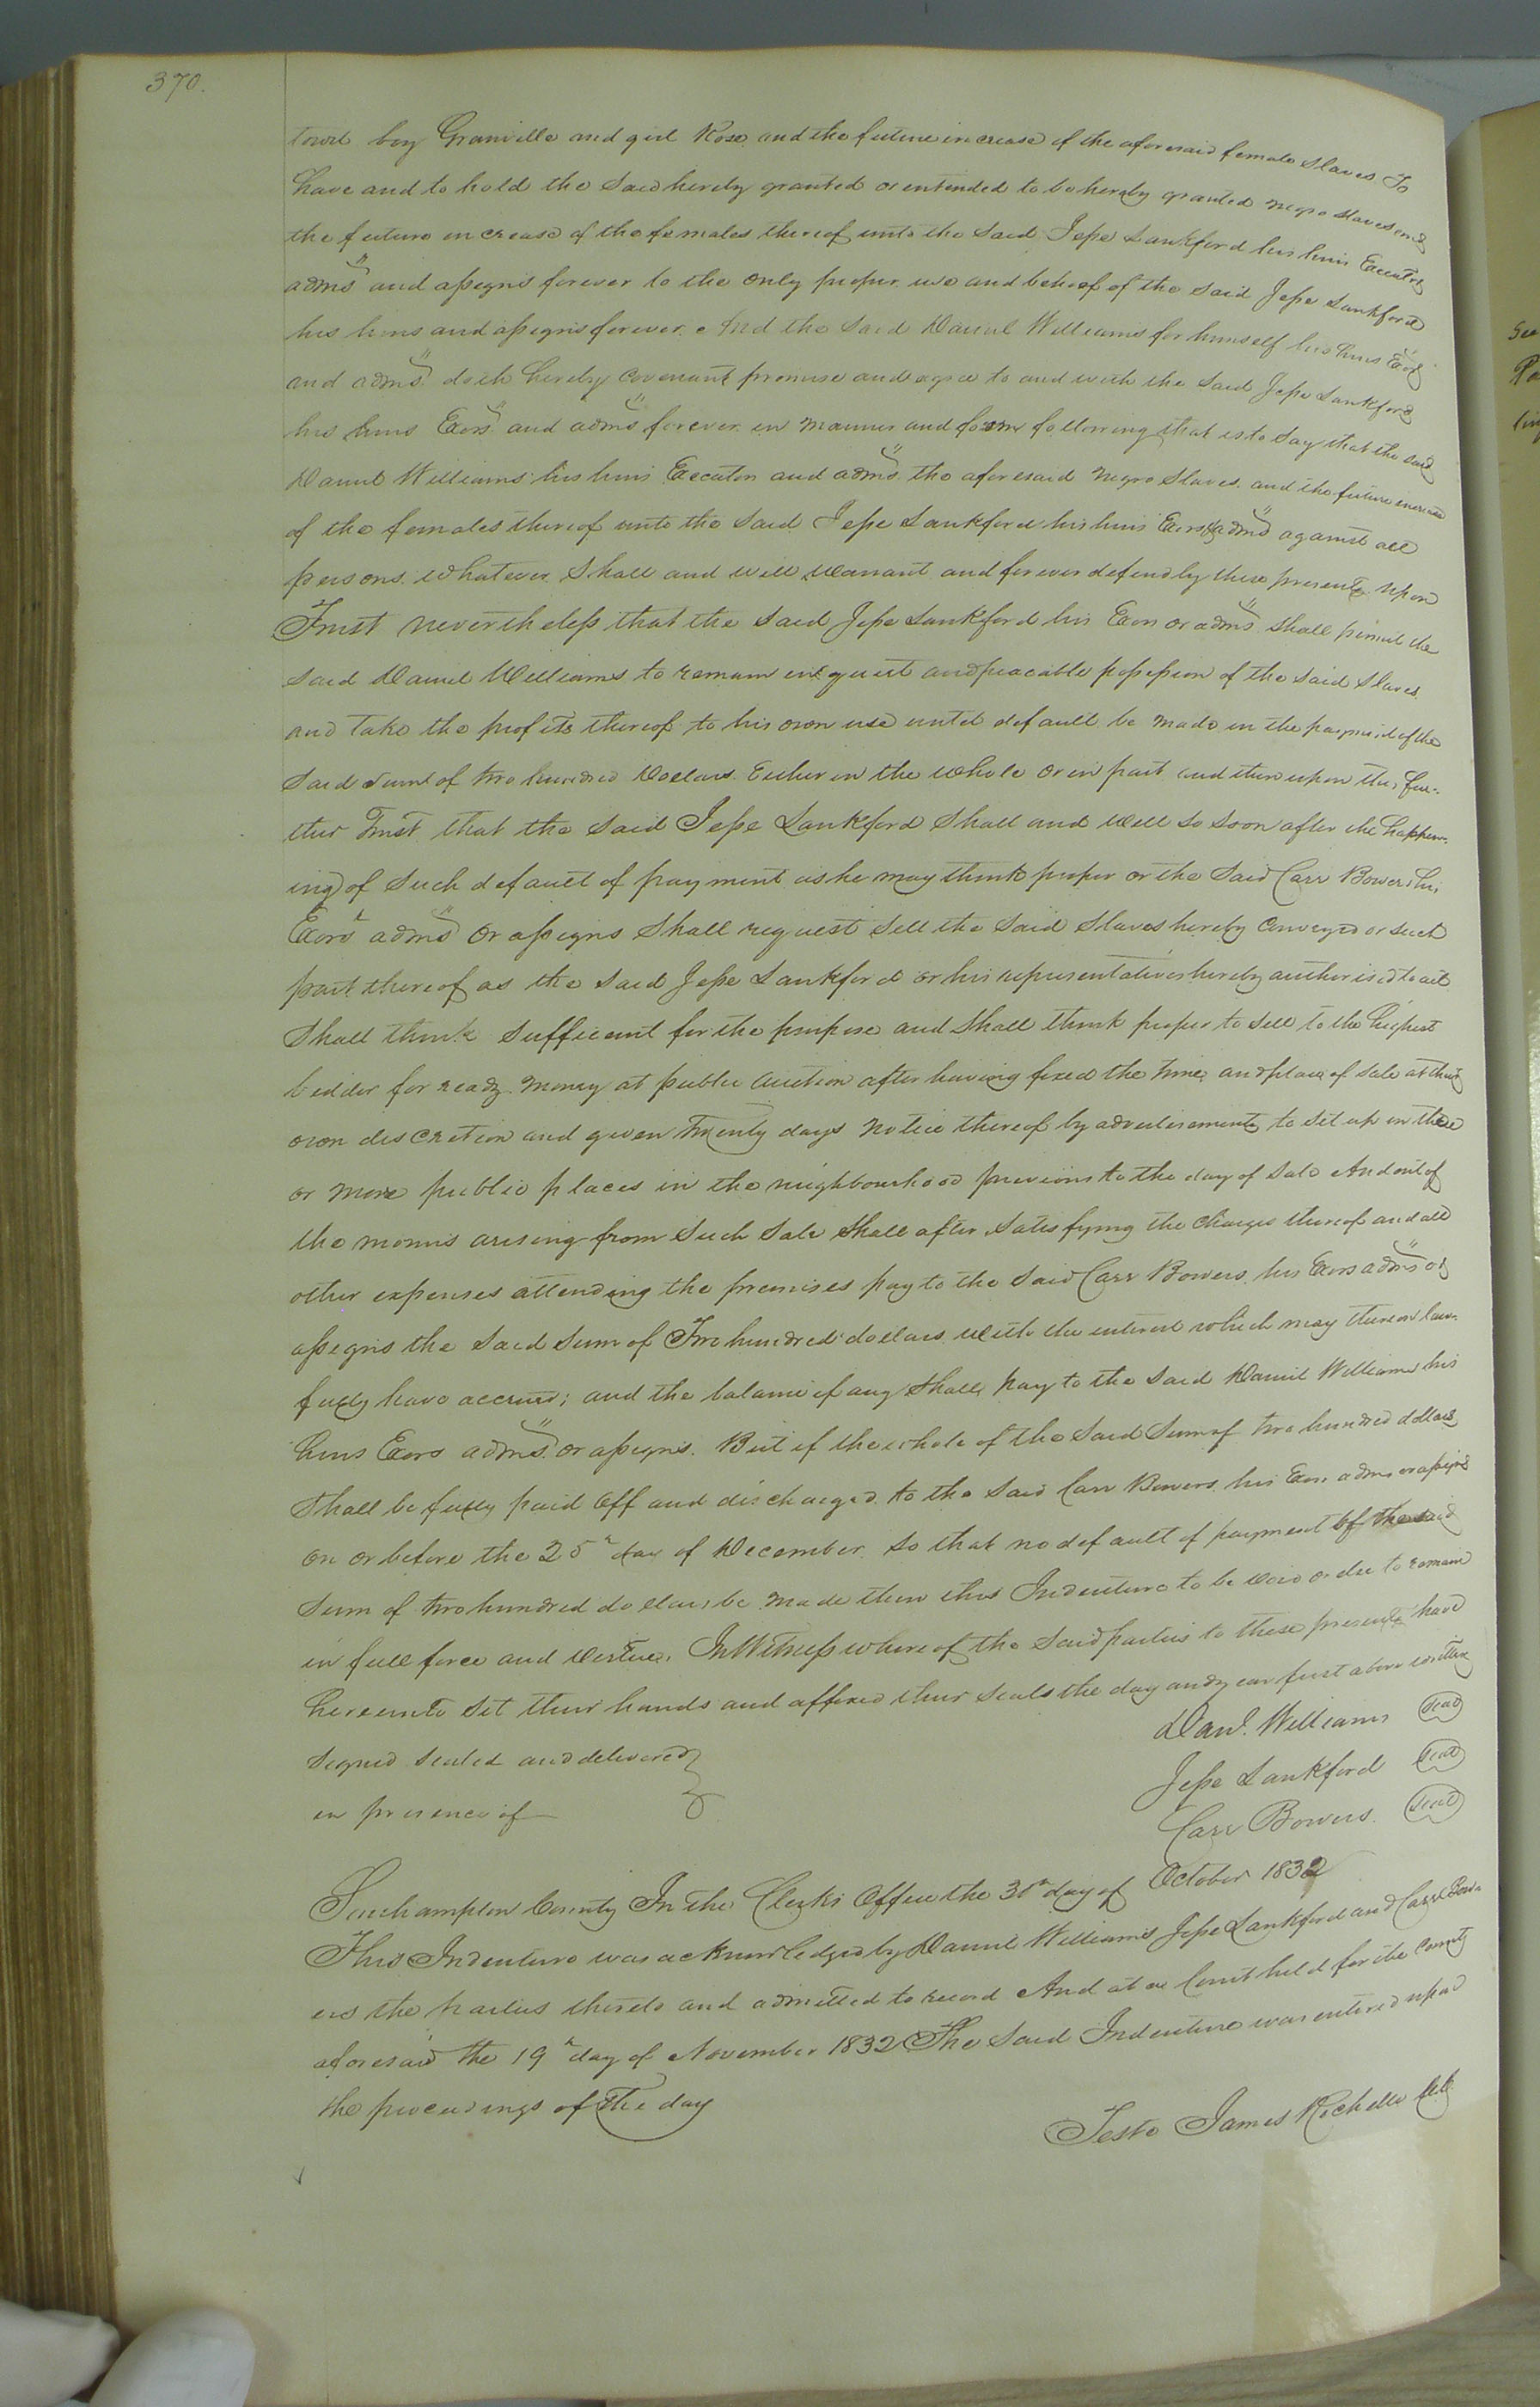 370.
boy Granville and girl Rose and the future increase of the aforesaid female slaves To
have and to hold the said hereby granted or intended to be hereby granted negro slaves and
the future increase of the females thereof unto the said Jesse Lankford his heirs Executors
adms and assigns forever to the only proper use and behoof of the said Jesse Lankford
his heirs and assigns forever. And the said Daniel Williams for himself his heirs Exors
and adms doth hereby covenant promise and agree to and with the said Jesse Lankford
his heirs Exors and adms forever in manner and form following that is to say that the said
Daniel Williams his heirs Executors and adms the aforesaid negro slaves and the future increase
of the females thereof unto the said Jesse Lankford his heirs Exors & adms against all
persons whatever shall and will warrant and forever defend by these presents upon
Trust nevertheless that the said Jesse Lankford his Exors or adms shall permit the
said Daniel Williams to remain in quiet and peacable possession of the said slaves
and take the profits thereof to his own use until default be made in the payment of the
said sum of two hundred Dollars Either in the whole or in part and then upon this fur-
ther Trust that the said Jesse Lankford shall and will so soon after the happen-
ing of such default of payment as he may think proper or the said Carr Bowers his
Exors adms or assigns shall request sell the said slaves hereby conveyed or such
part thereof as the said Jesse Lankford or his representatives hereby authorised to act
shall think sufficient for the purpose and shall think proper to sell to the highest
bidder for ready money at public auction after having fixed the time and place of sale at their
own discretion and given twenty days notice thereof by advertisements to set up in three
or more public places in the neighbourhood previous to the day of sale And out of
the monies arising from such sale shall after satisfying the charges thereof and all
other expenses attending the premises pay to the said Carr Bowers his Exors adms or
assigns the said sum of Two hundred dollars with the interest which may thereon law-
fully have accrued; and the balance if any shall pay to the said Daniel Williams his
heirs Exors adms or assigns. But if the whole of the said sum of two hundred dollars
shall be fully paid off and discharged to the said Carr Bowers his Exors adms or assigns
on or before the 25th day of December so that no default of payment of the said
sum of two hundred dollars be made then this Indenture to be void or else to remain
in full force and virtue. In Witness whereof the said parties to these presents have
hereunto set their hands and affixed their seals the day and year first above written
Signed sealed and delivered
in presence of
Danl. Williams seal
Jesse Lankford seal
Carr Bowers. seal
Southampton County In the Clerks Office the day of October 1832
This Indenture was acknowledged by Daniel Williams Jesse Lankford and Carr Bow-
ers the parties thereto and admitted to record And at a Court held for the County
aforesaid the 19th day of November 1832 The said Indenture was entered upon
the proceedings of the day
Teste James Rochelle